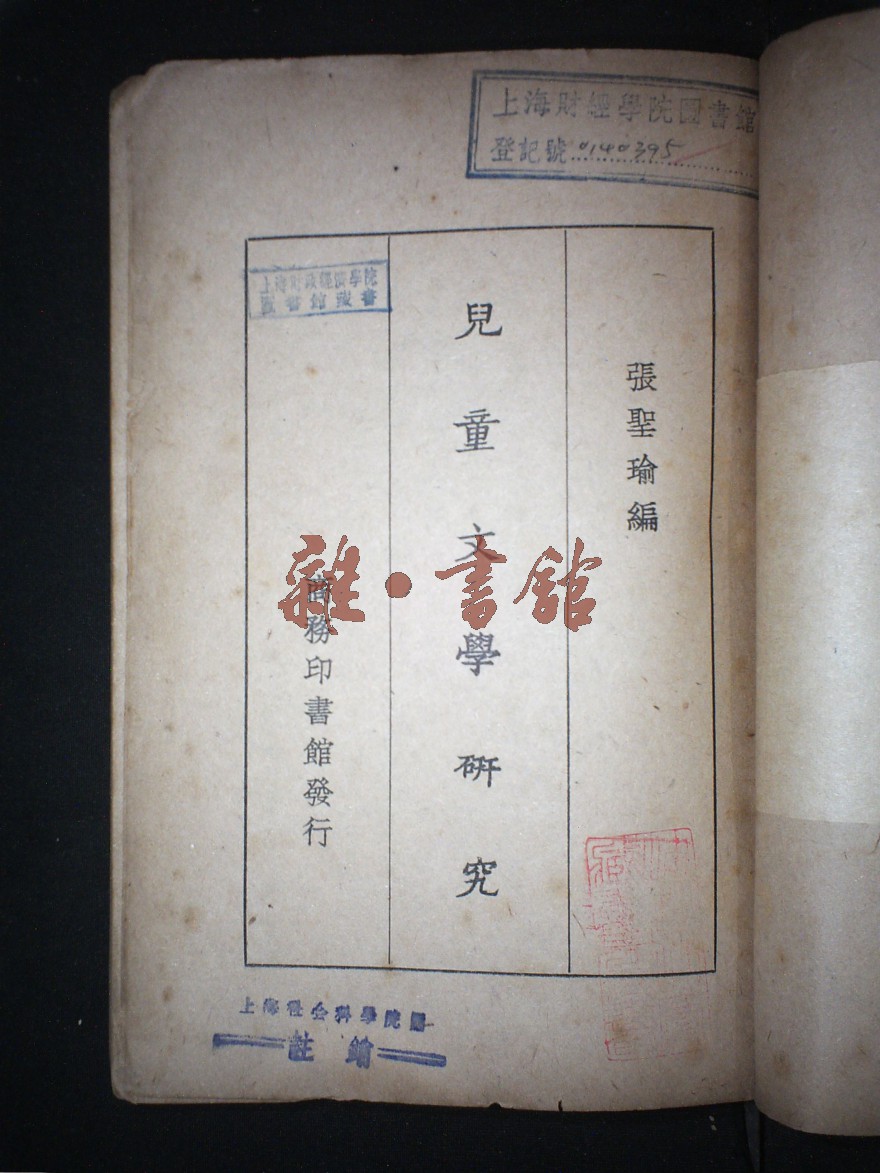 上海財經學院圖書館
登記號 0140395
張聖瑜編
兒童文學研究
上海財政經濟學院
圖書館藏書
商務印書館發行
雜·書館
上海社会科學院圖
註銷